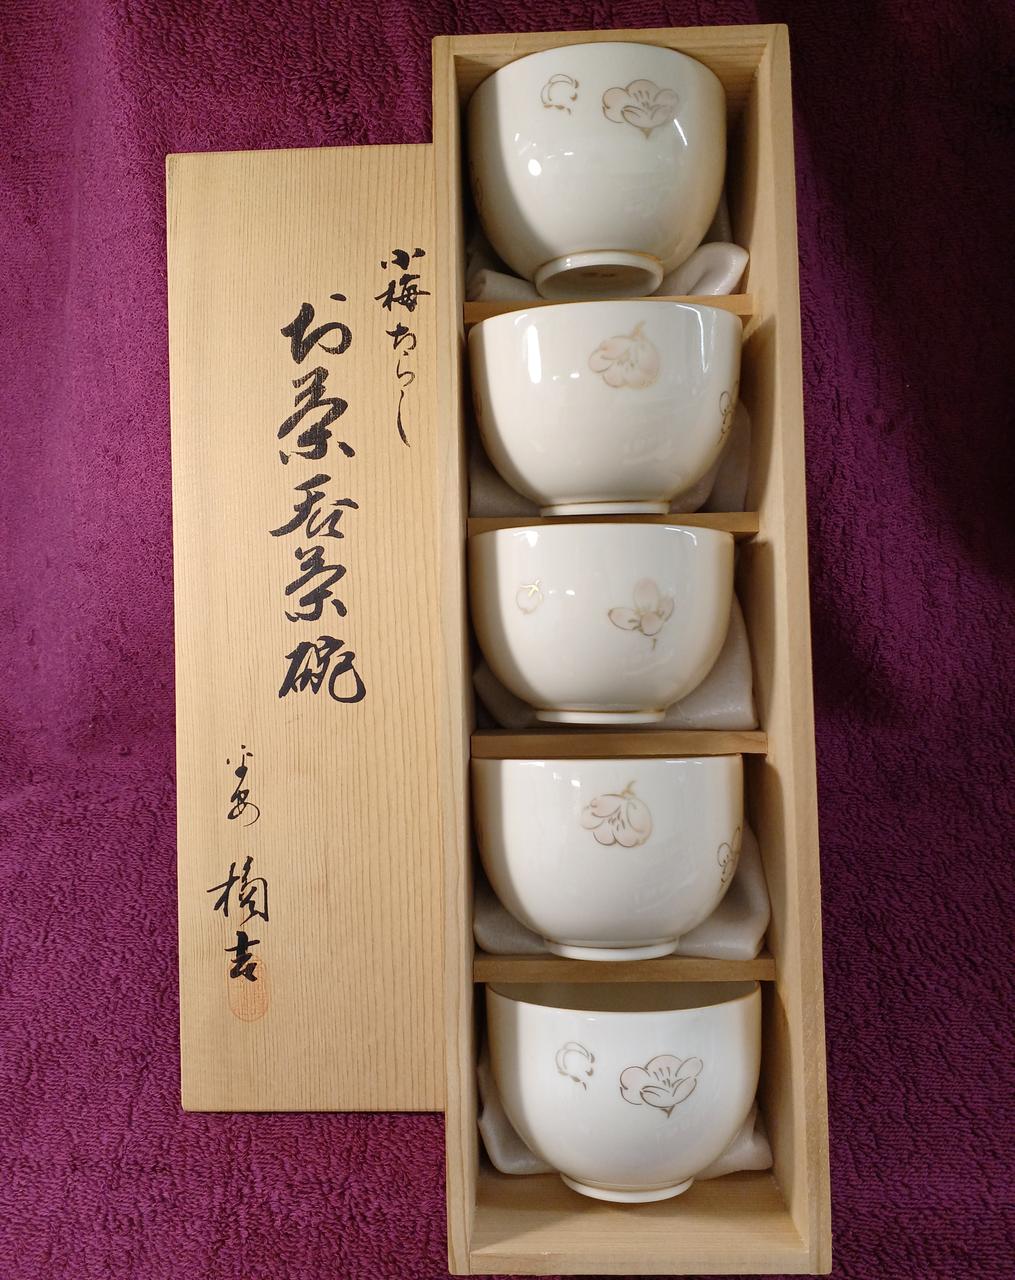 小梅ちらし
お茶呑茶碗
平安
橘吉